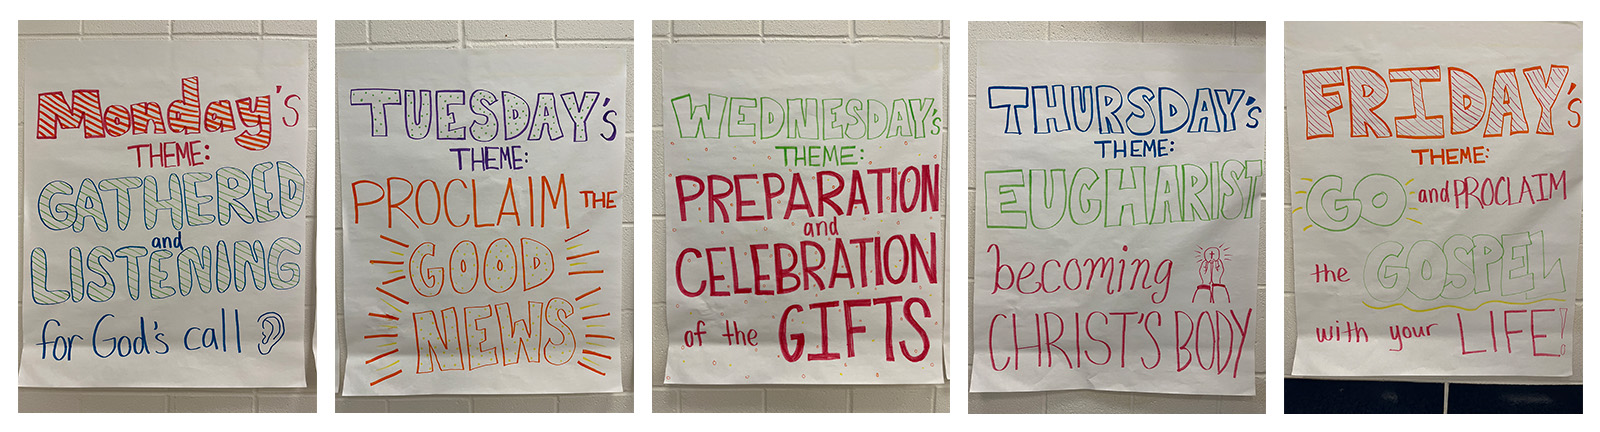 Monday's
THEME:
GATHERED
and
LISTENING
for God's call
TUESDAY's
THEME:
PROCLAIM THE
GOOD
NEWS
WEDNESDAY's
THEME:
PREPARATION
and
CELEBRATION
of the GIFTS
THURSDAY's
THEME:
EUCHARIST
becoming
CHRIST'S BODY
FRIDAY's
THEME:
GO and PROCLAIM
the GOSPEL
with your LIFE!